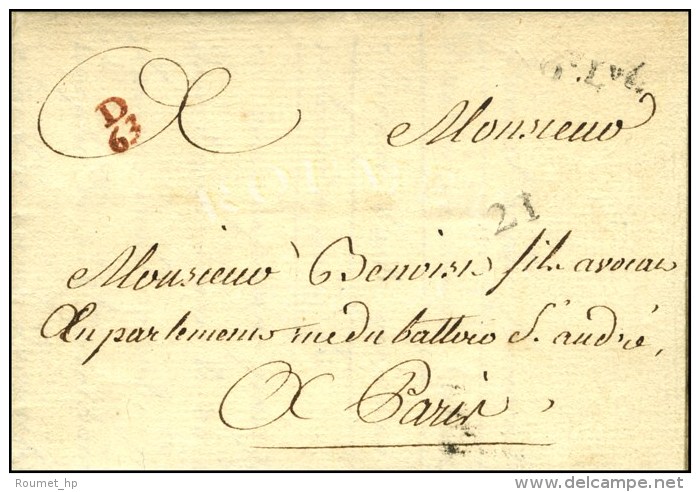 D
63
Monsieur
21
Monsieur Benoist fils avocat
En parlement rue du battoir St andré,
A Paris
Roumet_hp
delcampe.net